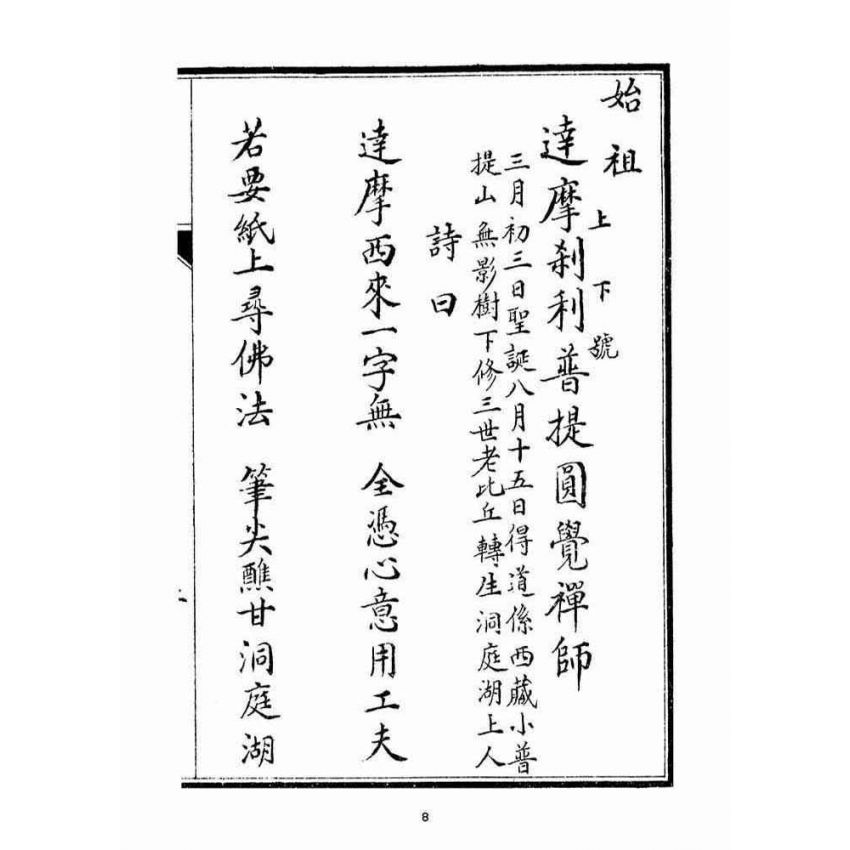 始祖
上下號
達摩刹利普提圓覺禪師
三月初三日聖誕八月十五日得道係西藏小普
提山無影樹下修三世老比丘轉生洞庭湖上人
詩曰
達摩西來一字無 全憑心意用工夫
若要紙上尋佛法 筆尖醮甘洞庭湖
8